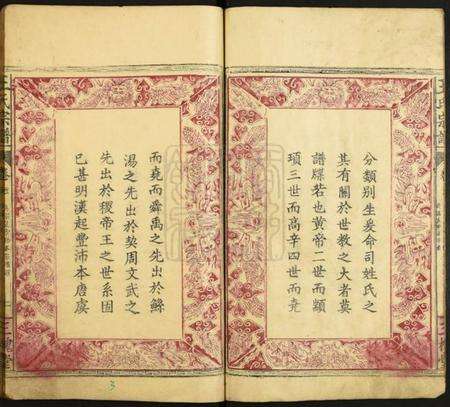 分類別生爰命司姓氏之
其有關於世教之大者莫
譜牒若也黄帝二世而顓
頊三世而高辛四世而堯
而堯而舜禹之先出於鯀
湯之先出於契周文武之
先出於稷帝王之世系固
已甚明漢起豐沛本唐虞
3